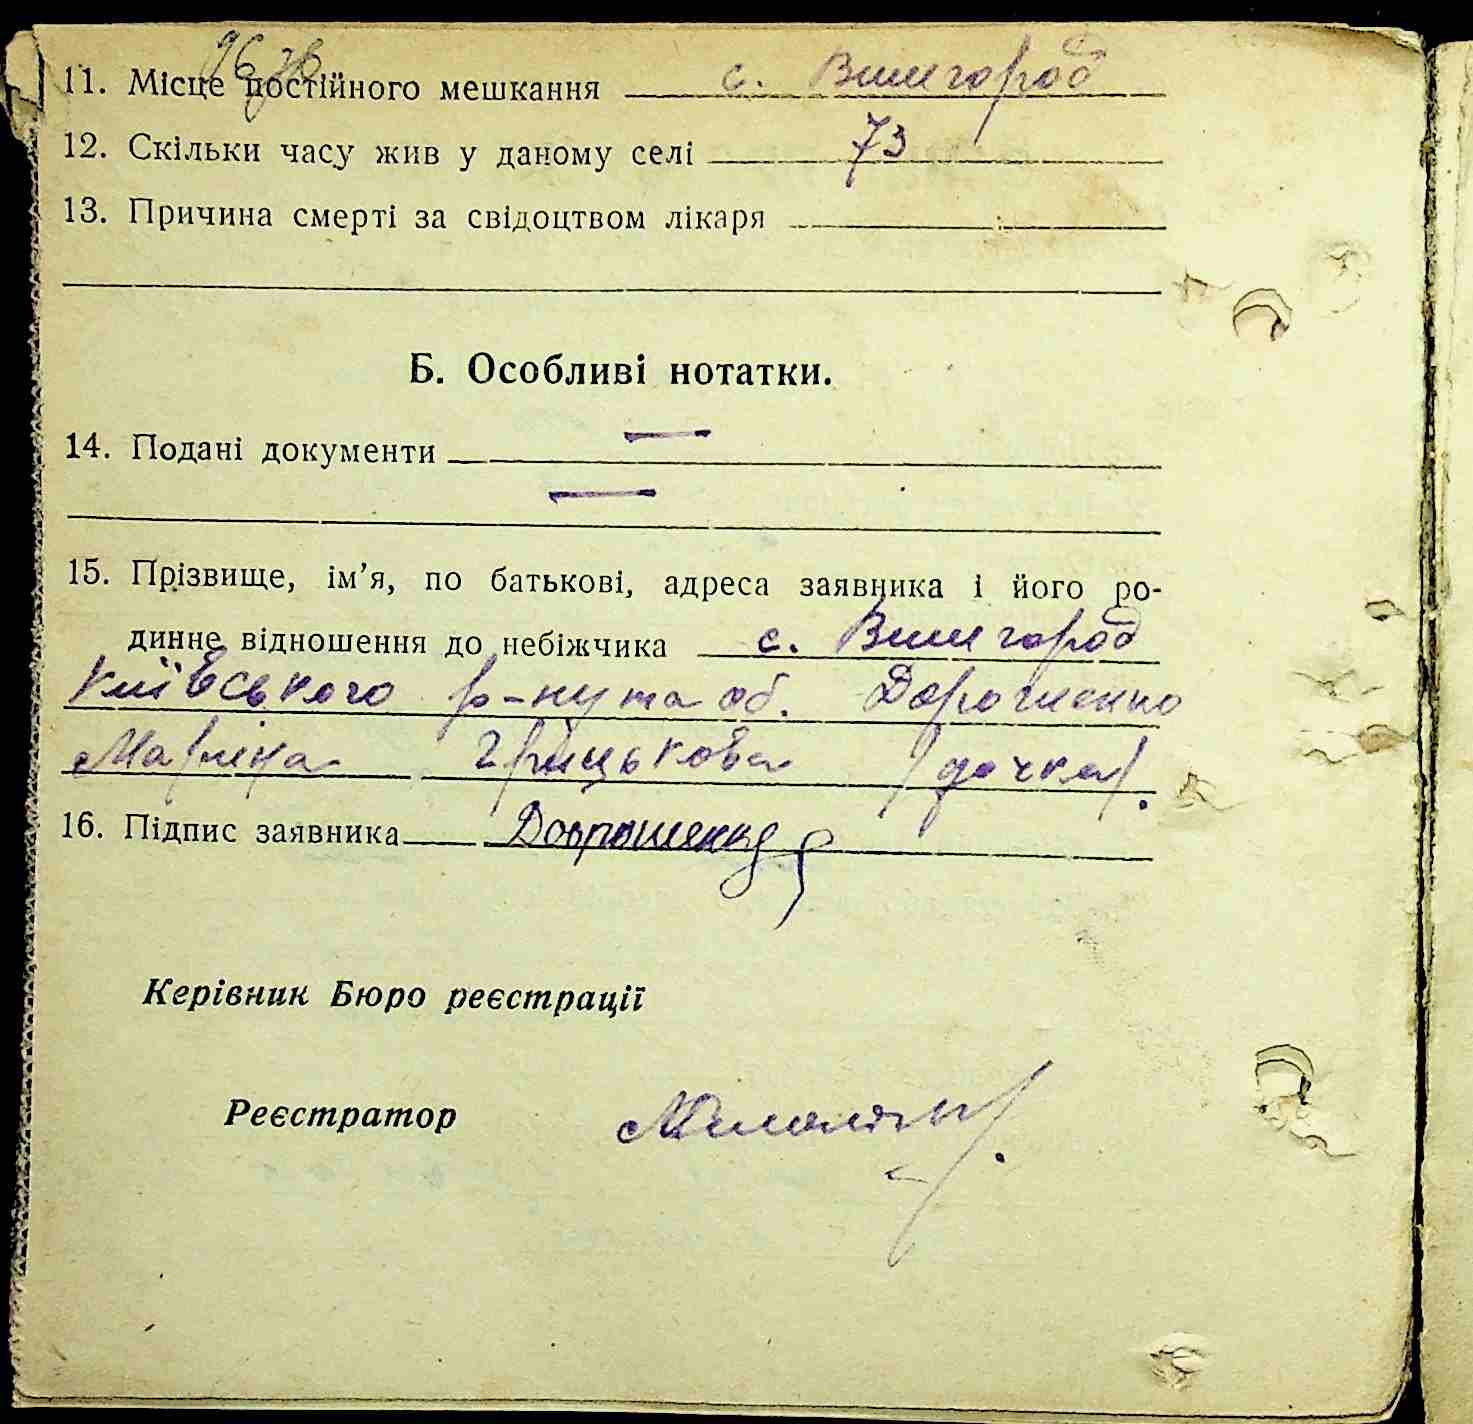 11. Місце постійного мешкання с. Вишгород
12. Скільки часу жив у даному селі 73
13. Причина смерті за свідоцтвом лікаря
Б. Особливі нотатки.
14. Подані документи —
—
15. Прізвище, ім'я, по батькові, адреса заявника і його ро-
динне відношення до небіжчика с. Вишгород
Київського р-ну та об. Дорошенко
Марина Грицькова /дочка/.
16. Підпис заявника Доорошенко
Керівник Бюро реєстрації
Реєстратор